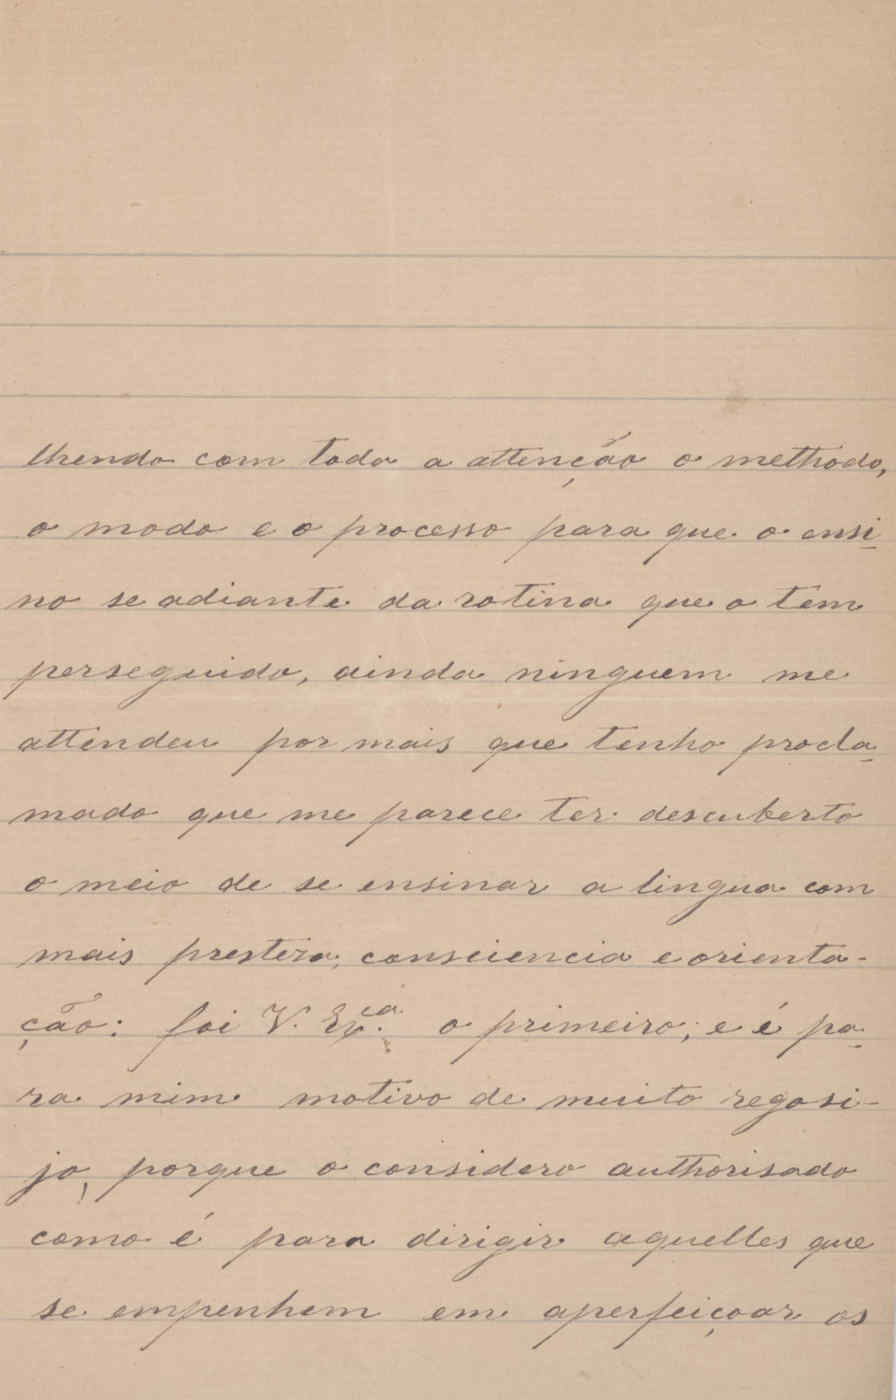 lhendo com toda a attenção o methodo,
o modo e o processo para que o ensi-
no se adiante da rotina que o tem
perseguido, ainda ninguem me
attendeu por mais que tenho procla-
mado que me parece ter descuberto
o meio de se ensinar a lingua com
mais presteza, consciencia e orienta-
ção: foi V. Exca. o primeiro; e é pa-
ra mim motivo de muito regosi-
jo, porque o considero authorisado
como é para dirigir aquelles que
se empenhem em aperfeiçoar os